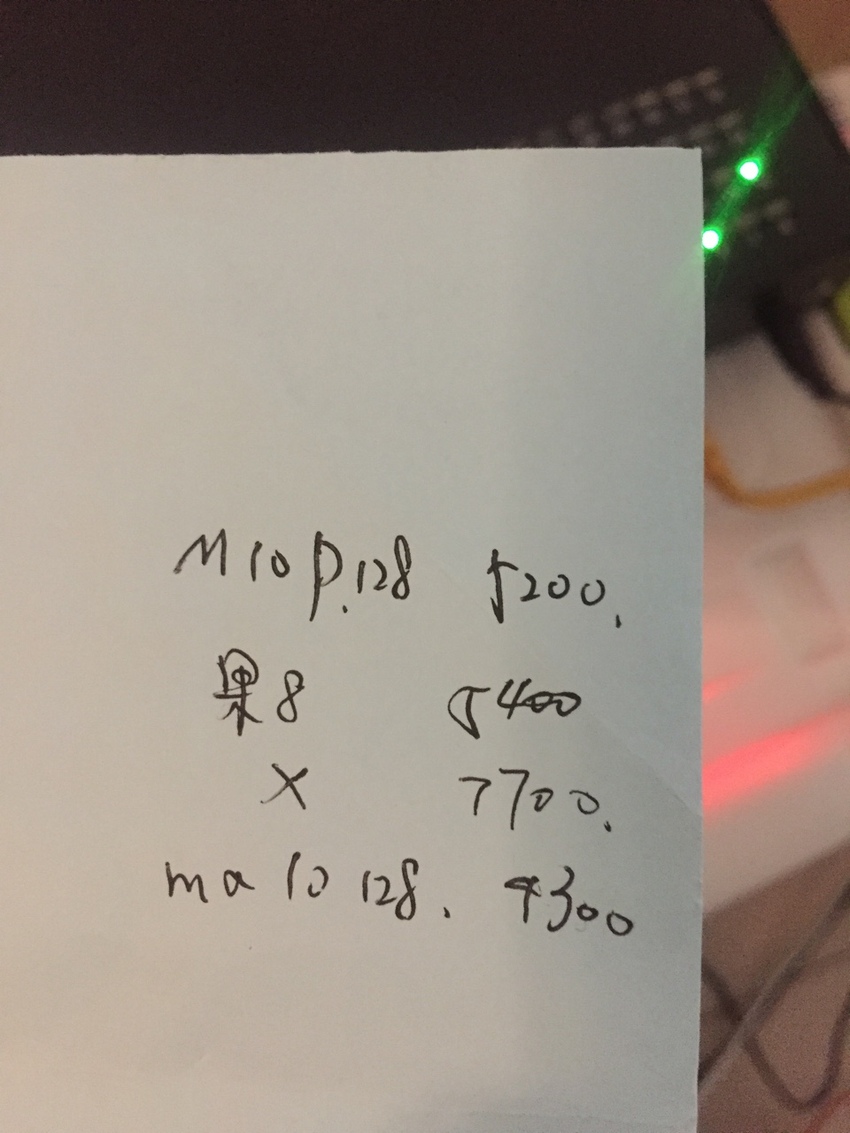 M10 P.128 5200.
果8 5400
X 7700.
ma 10 128. 4300